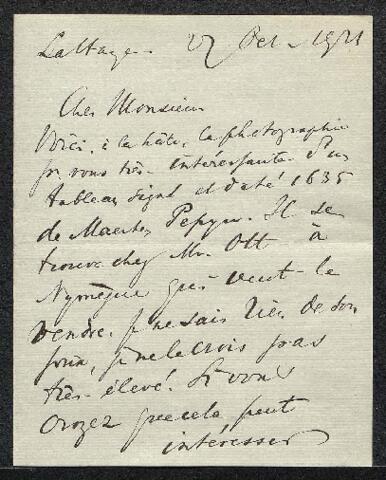 La Haye. 27 Oct. 1921
Cher Monsieur
Voici, à la hâte, la photographie
pr. vous très intéressante d'un
tableau signé et daté 1635
de Maerten Pepyn. Il se
trouve chez Mr. Ott à
Nymègue qui veut le
vendre. Je ne sais rien de son
prix, je ne le crois pas
très élevé. Si vous
croyez que cela peut
intéresser